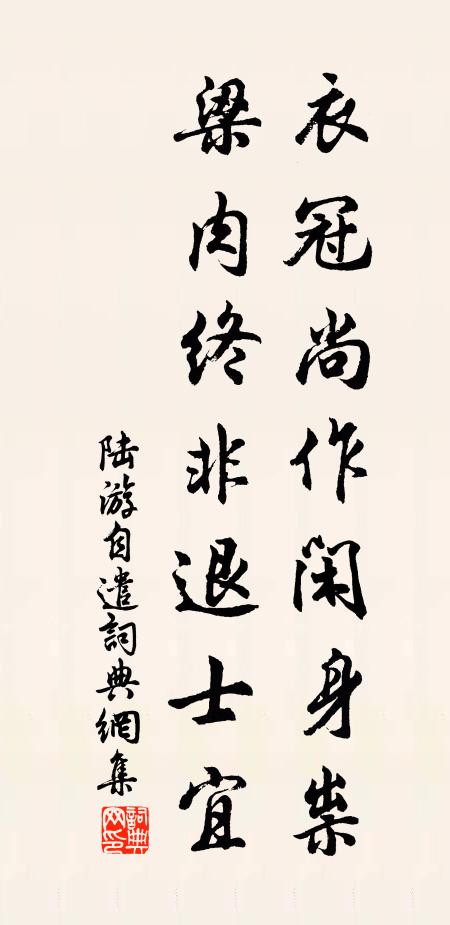 衣冠尚作閑身祟
粱肉終非退士宜
陆游自遣詞典網集
詞典网印